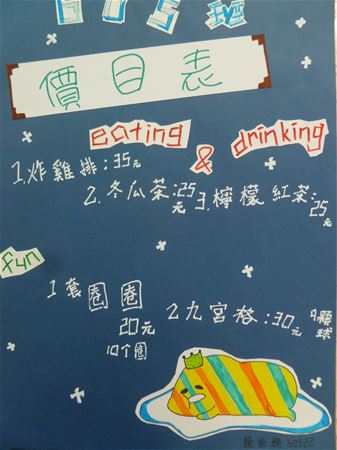 班
價目表
eating & drinking
1.炸雞排:35元
2.冬瓜茶:25元 3.檸檬紅茶:25元
fun
1套圈圈
20元
10个圈
2九宮格:30元 9顆球
60322